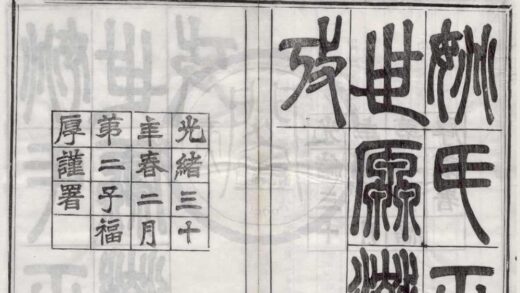 姚氏百
世源流
考
光緒三十
年春二月
第二子福
厚謹署